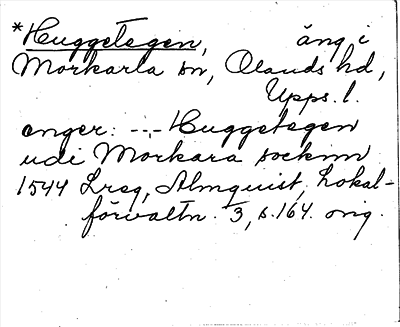 *Huggetegen, äng i
Morkarla sn, Olands hd,
Upps. l.
enger: -:- Huggetegen
udi Morkara sockinn
1544 Lreg, Almquist, Lokal-
förvaltn. 3, s. 164. orig.